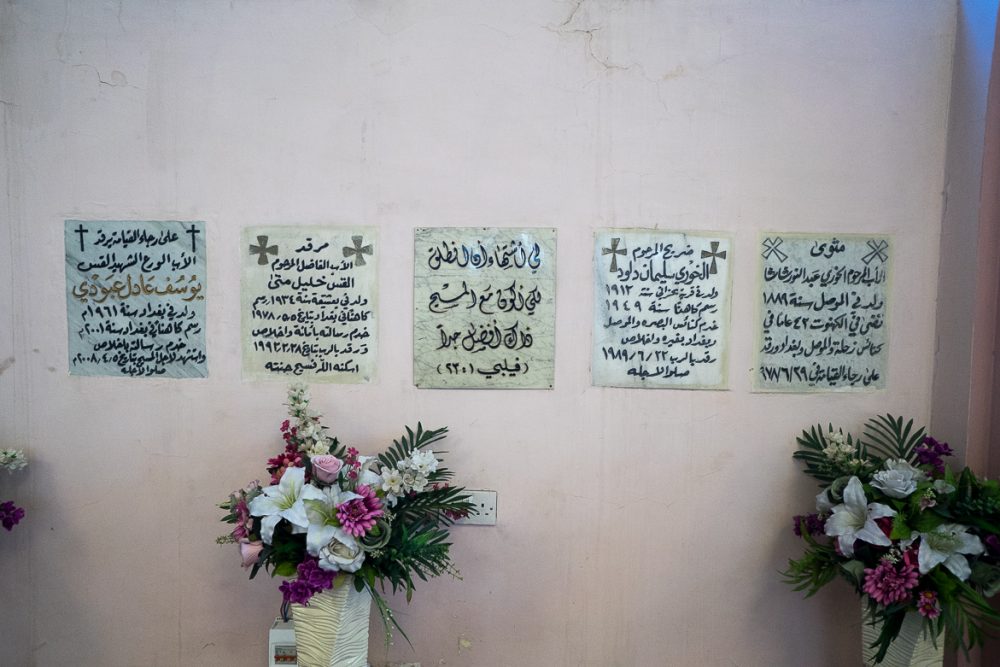 مثوى
الأب المرحوم الخوري عبد النور شاشا
ولد في الموصل سنة ١٨٨٩
قضى في الكهنوت ٤٢ عاما في
كنائس زحلة والموصل وبغداد ورقد
على رجاء القيامة في ٩٧٨/٦/٢٩
ضريح المرحوم
الخوري سليمان داود
ولد في قرية سنة ١٩١٣
رسم كاهنا سنة ١٩٤٩
خدم كنائس البصره والموصل
وبغداد بغيره واخلاص
رقد بالرب ١٩٨٩/٦/٢٢
صلوا لاجله
لي أشتهاء أن انطلق
لكي أكون مع المسيح
ذاك أفضل جداً
(فيلبي ٢٣:١)
مرقد
الأب الفاضل المرحوم
القس خليل متي
ولد في سنة ١٩٣٤ رسم
كاهنا في بغداد بتاريخ ١٩٧٨/٥/٥
خدم رسالته بأمانة واخلاص
ورقد بالرب بتاريخ ١٩٩٣/٣/٢٨
اسكنه الله فسيح جنته
على رجاء القيامة يرقد
الأب الورع الشهيد القس
يوسف عادل عبودي
ولد في بغداد سنة ١٩٦١م
رسم كاهنا في بغداد سنة ٢٠٠١م
خدم رسالته بإخلاص
واستشهد لأجل المسيح بتاريخ ٢٠٠٨/٤/٥
صلوا لأجله